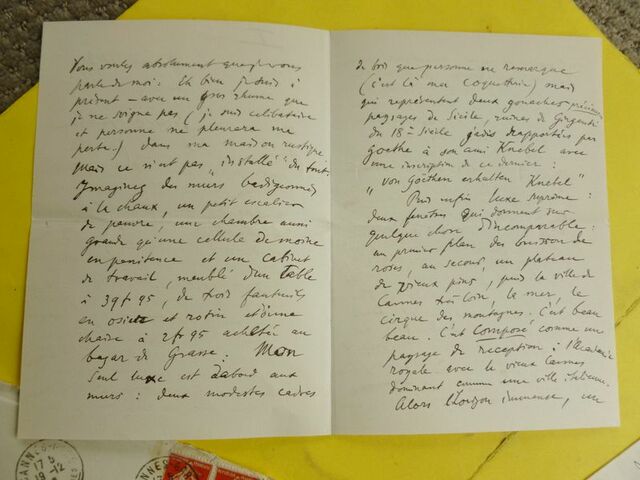 Vous voulez absolument que je vous
parle de moi : Eh bien je suis à
présent – avec un gros rhume que
je ne soigne pas (je suis célibataire
et personne ne pleurera ma
perte) dans ma maison rustique
Mais ce n'est pas "installé" du tout.
Ymaginez des murs badigeonnés
à la chaux, un petit escalier
de pauvre, une chambre aussi
grande qu'une cellule de moine
en pénitence et un cabinet
de travail, meublé d'un table
à 39f95, de trois fauteuils
en osier et rotin et d'une
chaise à 2fr95 achetée au
bazar de Grasse. Mon
seul luxe est d'abord aux
murs : deux modestes cadres
de bois que personne ne remarque
(c'est là ma coquetterie) mais
qui représentent deux gouaches précieuses
paysages de Sicile, ruines de Girgenti
du 18e siècle jadis rapportées par
Goethe à son ami Knebel avec
une inscription de ce dernier :
"von Göthen erhalten Knebel"
Puis enfin luxe suprème :
deux fenêtres qui donnent sur
quelque chose d'incomparable :
un premier plan des buisson de
roses, au second, un plateau
de vieux pins, puis la ville de
Cannes très loin, la mer, le
cirque des montagnes. C'est beau
beau. C'est composé comme un
paysage de réception à l'Académie
royale avec le vieux Cannes
dominant comme une ville italienne.
Alors l'horizon immense, un
CANNES
17 5
12